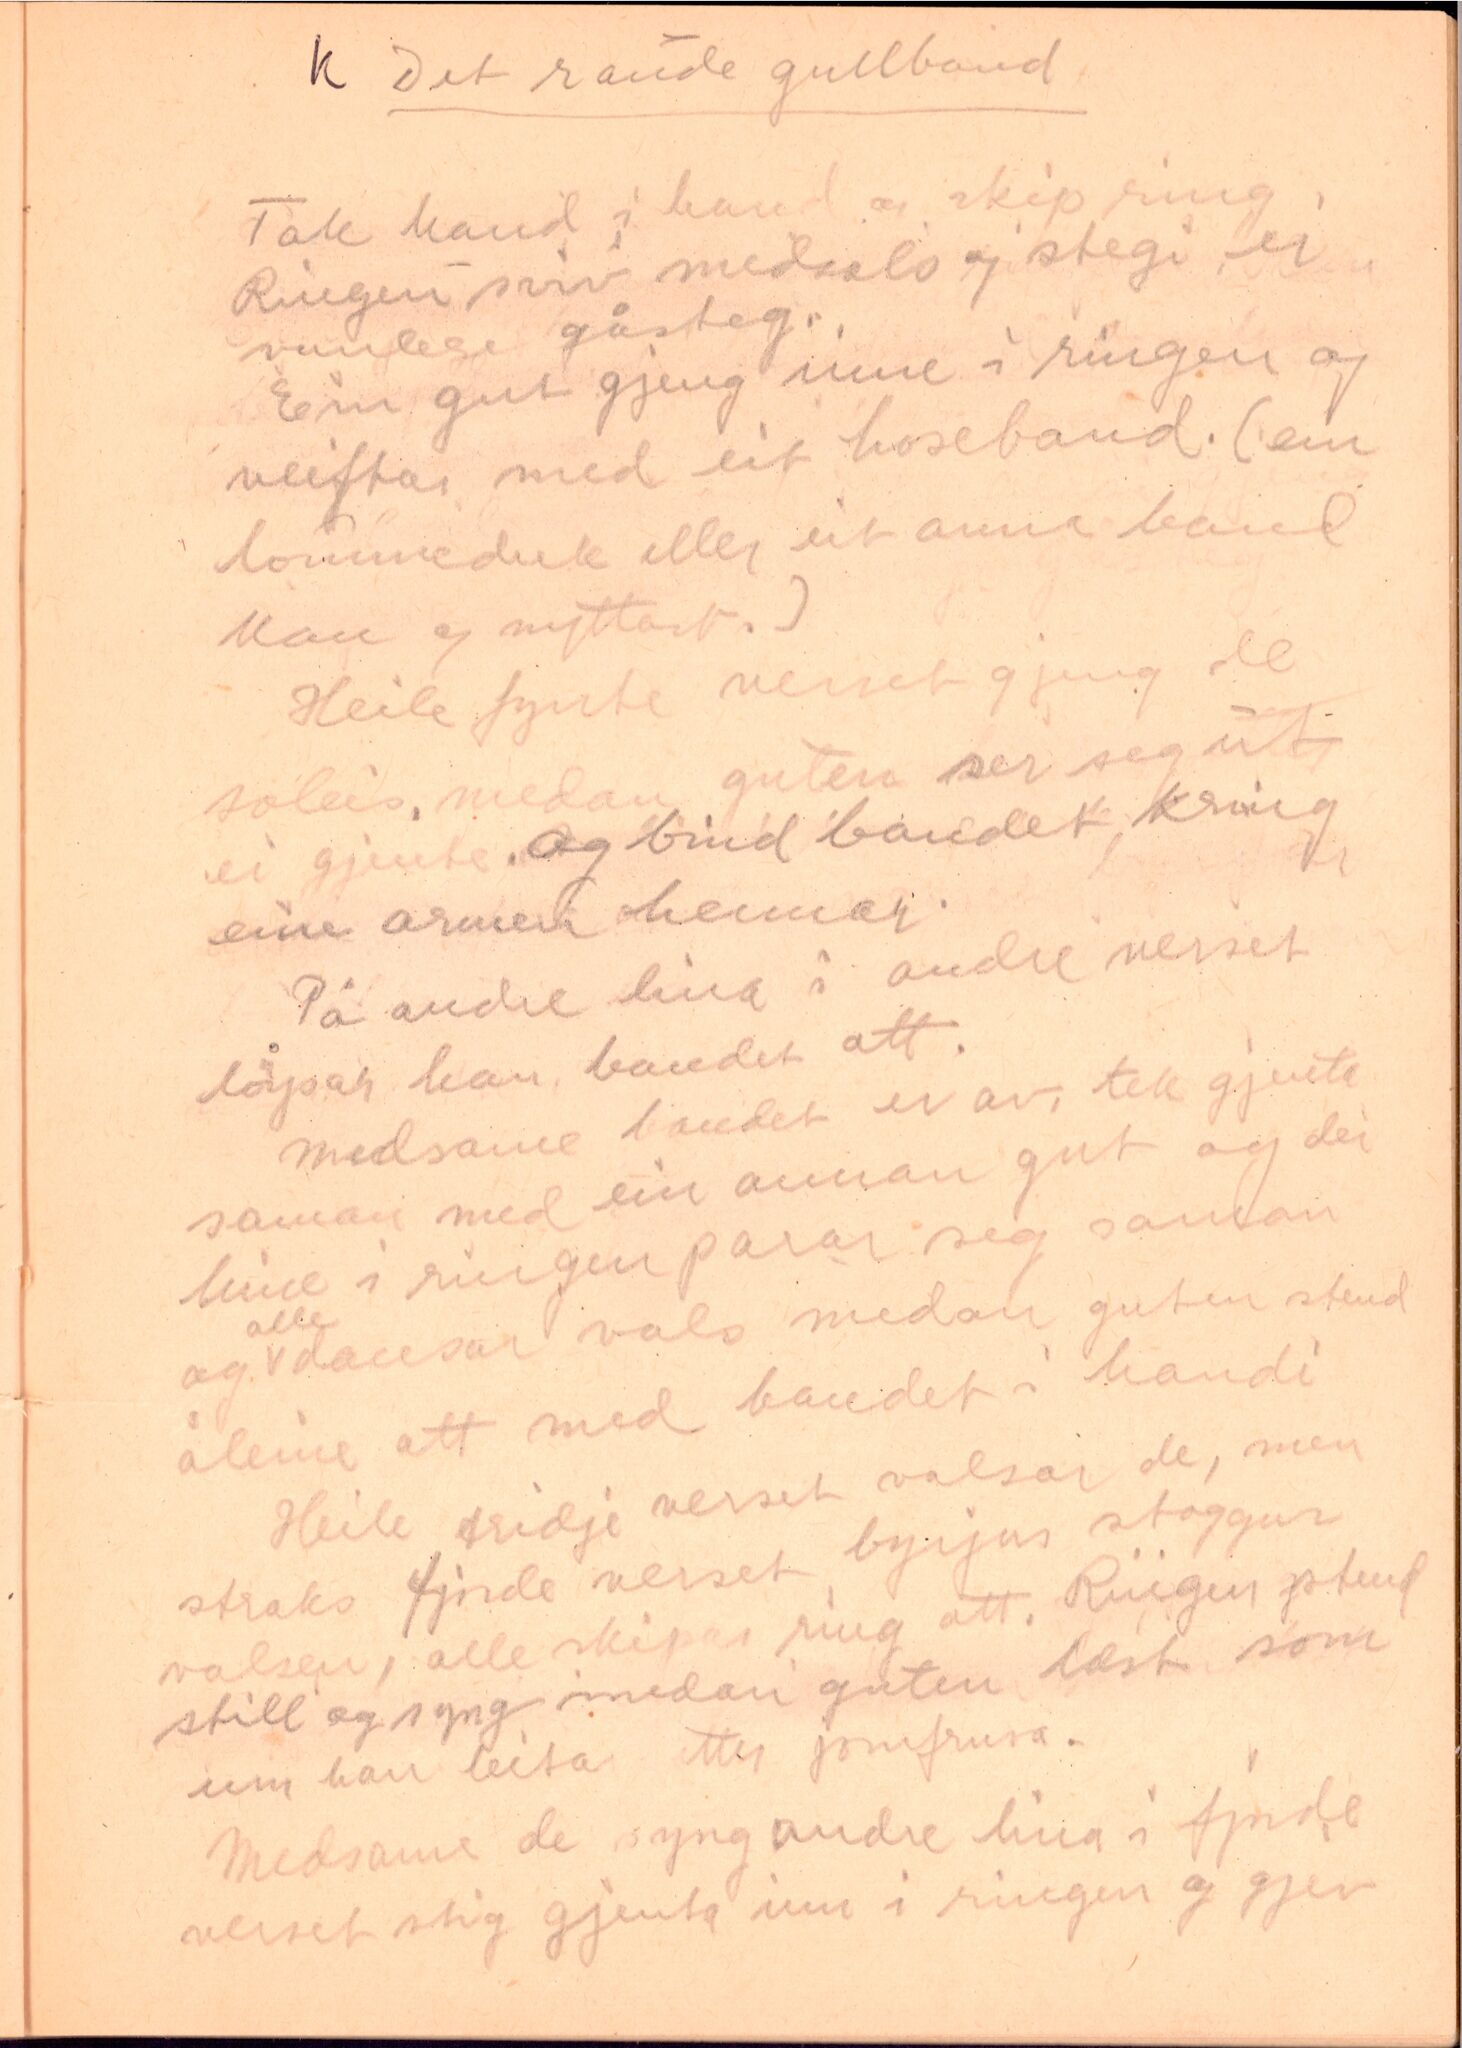 K Det raude gullband
Tak hand i hand og skip ring.
Ringen sviv medsols og stegi er
vanlege gåsteg.
Ein gut gjeng inne i ringen og
veiftar med eit hoseband. (ein
lommeduk eller eit anna band
kan og nyttast.)
Heile fyrste verset gjeng de
soleis, medan guten ser seg ut
ei gjente. og bind bandet kring
eine armen hennar.
På andre lina i andre verset
løyser han bandet att.
Medsame bandet er av, tek gjenta
saman med ein annan gut og dei
hine i ringen parar seg saman
og alle dansar vals medan guten stend
åleine att med bandet i handi
Heile tridje verset valsar de, men
straks fjorde verset byrjar stoggar
valsen, alle skipar ring att. Ringen stend
still og syng medan guten læst som
um han leitar etter jomfruva.
Medsame de syng andre lina i fjorde
verset stig gjenta inn i ringen og gjev